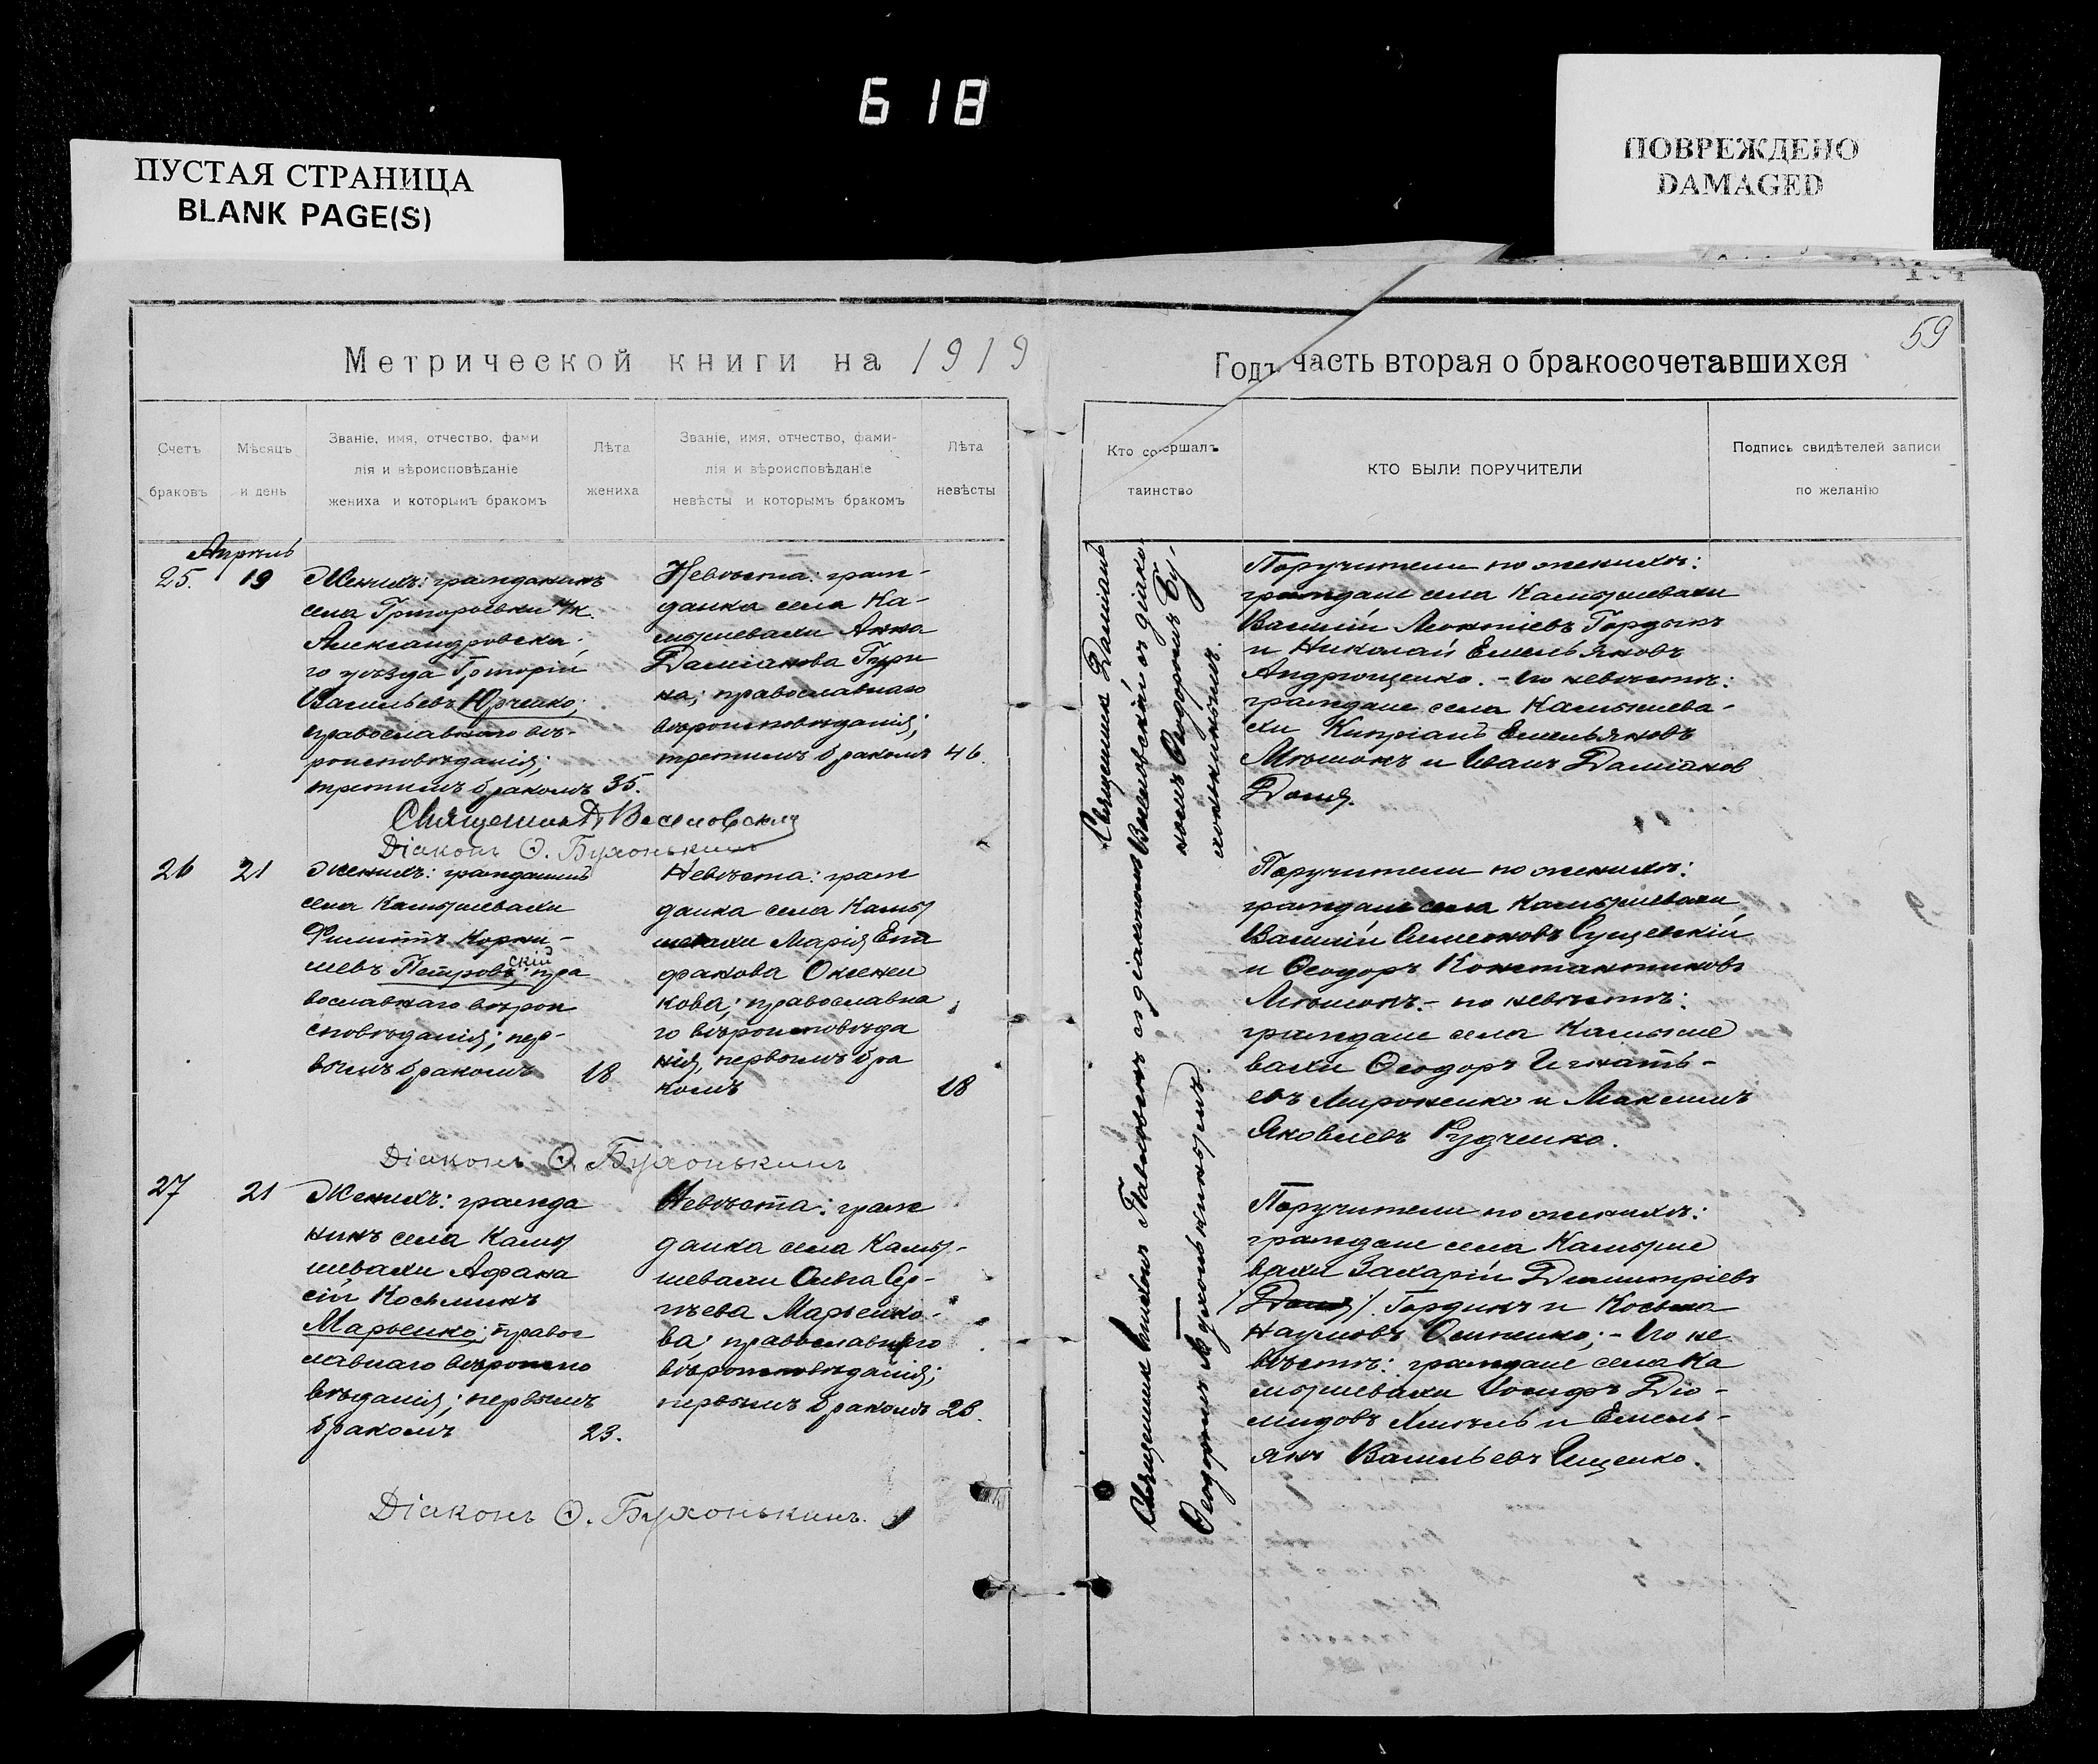 618
ПУСТАЯ СТРАНИЦА
BLANK PAGE(S)
ПОВРЕЖДЕНО
DAMAGED
59
Метрической книги на 1919
Годъ часть вторая о бракосочетавшихся
Счетъ
браковъ
Мѣсяцъ
и день
Званіе, имя, отчество, фами
лія и вѣроисповѣданіе
жениха и которымъ бракомъ
Лѣта
жениха
Званіе, имя, отчество, фами-
лія и вѣроисповѣданіе
невѣсты и которымъ бракомъ
Лѣта
невѣсты
Кто совершалъ
таинство
КТО БЫЛИ ПОРУЧИТЕЛИ
Подпись свидѣтелей записи
по желанію
Апрѣль
25. 19
Женихъ: гражданинъ
села Григорьевки
Александровска-
го уѣзда Григорій
Васильевъ Юрченко;
православнаго вѣ-
роисповѣданія;
третимъ бракомъ 35.
Невѣста: граж-
данка села Ка-
мышевахи Анна
Даміанова Гури
на; православнаго
вѣроисповѣданія;
третимъ бракомъ 46.
Священникъ Даміанъ
Веселовскій съ діако-
номъ Ѳеодоромъ Бу-
хонькинымъ.
Поручители по женихѣ:
граждане села Камышевахи
Василій Леонтіевъ Гордынъ
и Николай Емельяновъ
Андрющенко. - По невѣстѣ:
граждане села Камышева-
хи Кипріанъ Емельяновъ
и Иванъ Даміановъ
Священникъ Д. Веселовскій
Діаконъ Ѳ. Бухонькинъ
26 21
Женихъ: гражданинъ
села Камышевахи
Филиппъ Корни-
ліевъ Петровскій; пра
вославнаго вѣрои
сповѣданія; пер-
вымъ бракомъ 18
Невѣста: граж
данка села Камы
шевахи Марія Епи
фанова Оксенен
кова; православна
го вѣроисповѣда
нія, первымъ бра
комъ 18
Поручители по женихѣ:
граждане села Камышевахи
Василій Симеоновъ Сущевскій
и Ѳеодоръ Константиновъ
по невѣстѣ:
граждане села Камыше
вахи Ѳеодоръ Игнать-
евъ Мироненко и Максимъ
Яковлевъ Рудченко.
Діаконъ Ѳ. Бухонькинъ
27 21
Женихъ: гражда
нинъ села Камы
шевахи Афана
сій Косьминъ
Марьенко; правос
лавнаго вѣроиспо
вѣданія; первымъ
бракомъ 23.
Невѣста: граж
данка села Камы-
шевахи Ольга Сер-
гѣева Марьенко-
ва; православнаго
вѣроисповѣданія;
первымъ бракомъ 28.
Священникъ съ діакономъ
Ѳеодоромъ Бухонькинымъ.
Поручители по женихѣ:
граждане села Камыше
вахи Захарій Димитріевъ
Гординъ и Косьма
Наумовъ Осипенко; - По не
вѣстѣ: граждане села Ка
мышевахи Іосифъ Діо-
мидовъ и Емель-
янъ Васильевъ Ищенко.
Діаконъ Ѳ. Бухонькинъ.